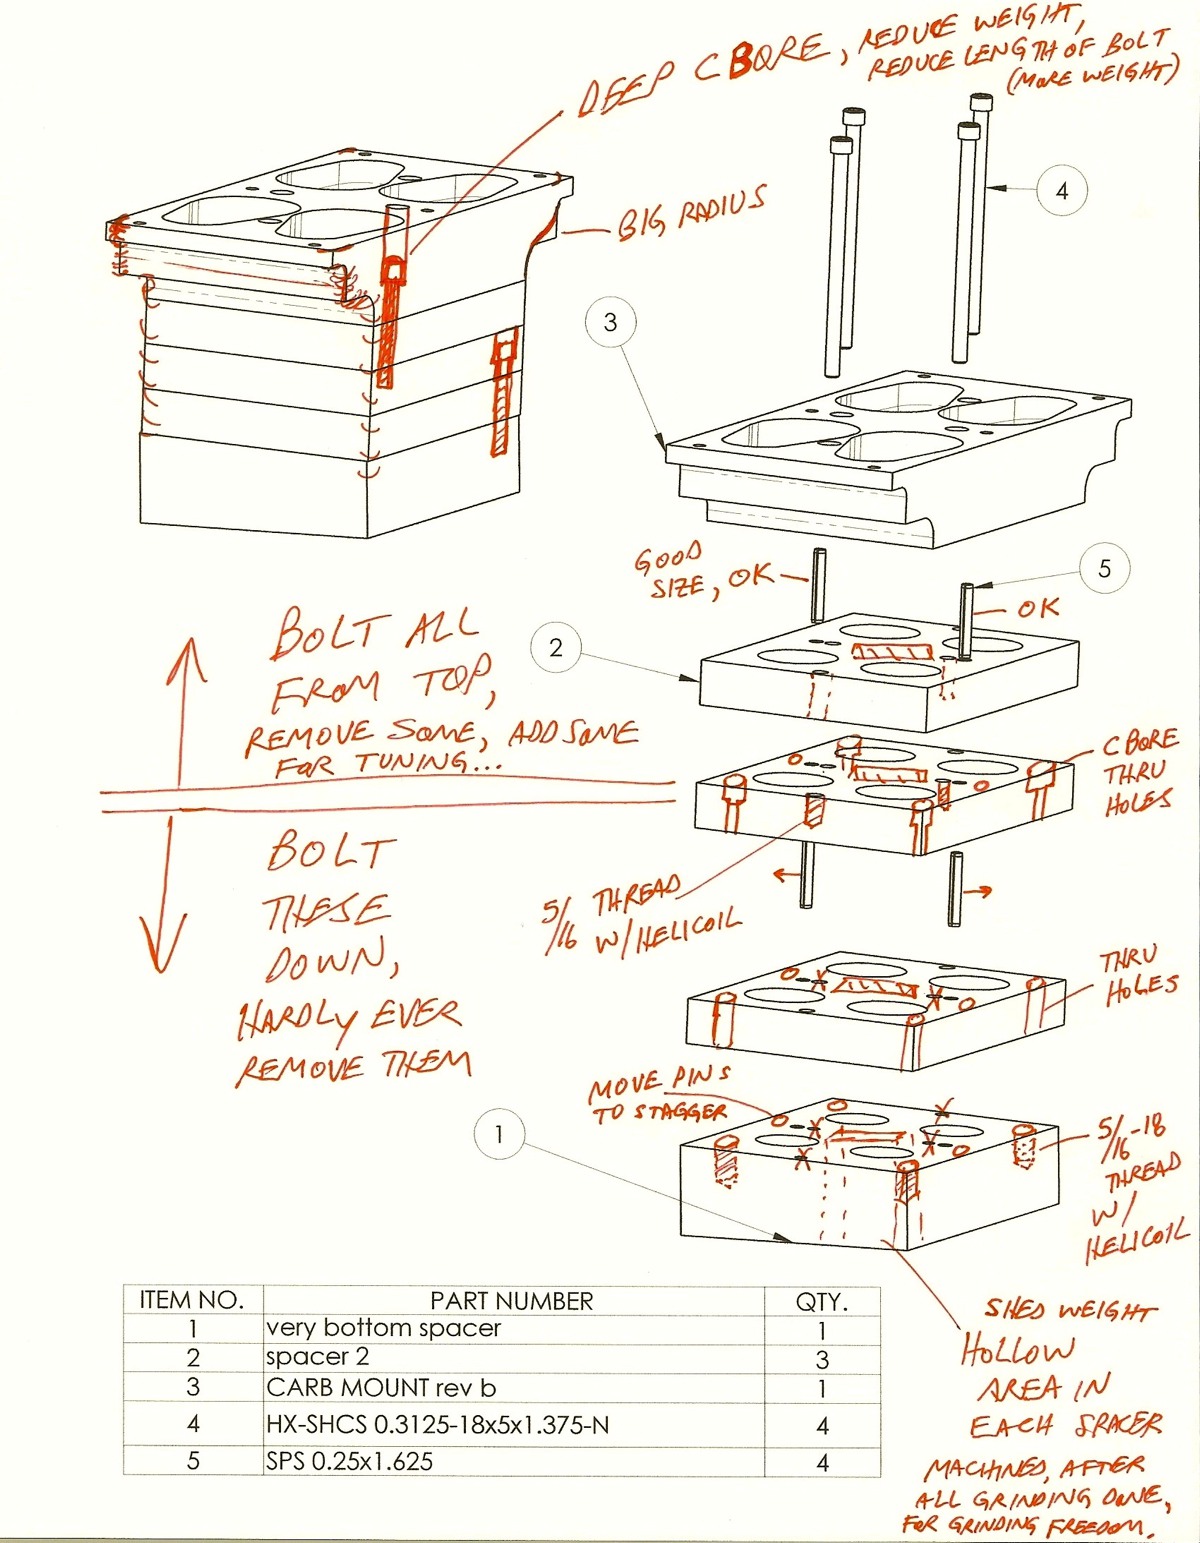 DEEP CBORE, REDUCE WEIGHT,
REDUCE LENGTH OF BOLT
(MORE WEIGHT)
4
BIG RADIUS
3
GOOD
SIZE, OK
5
OK
2
BOLT ALL
FROM TOP,
REMOVE SOME, ADD SOME
FOR TUNING...
CBORE
THRU
HOLES
BOLT
THESE
DOWN,
HARDLY EVER
REMOVE THEM
5/16 THREAD
W/HELICOIL
THRU
HOLES
MOVE PINS
TO STAGGER
1
5/16-18
THREAD
W/
HELICOIL
SHED WEIGHT
HOLLOW
AREA IN
EACH SPACER
MACHINED, AFTER
ALL GRINDING DONE,
FOR GRINDING FREEDOM.
ITEM NO. PART NUMBER QTY.
1 very bottom spacer 1
2 spacer 2 3
3 CARB MOUNT rev b 1
4 HX-SHCS 0.3125-18x5x1.375-N 4
5 SPS 0.25x1.625 4